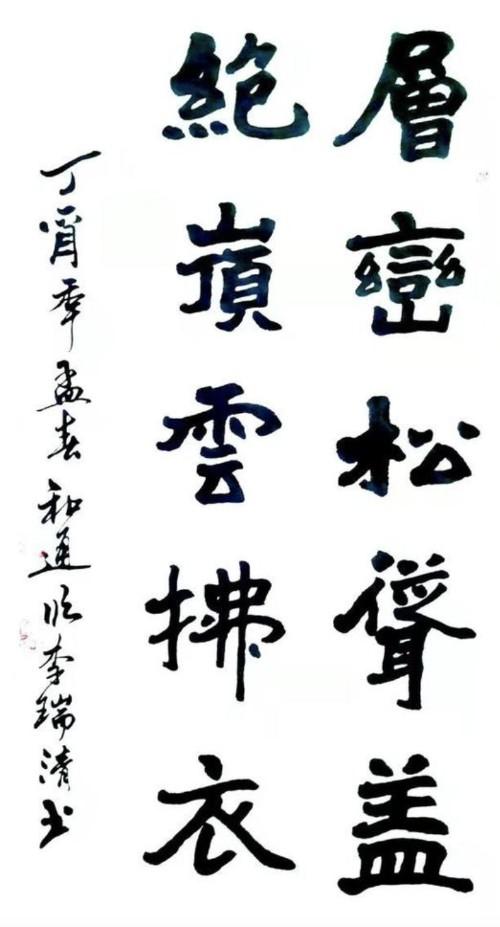 層巒松聳盖
絶嶺雲拂衣
丁酉年孟春和臨李瑞清书